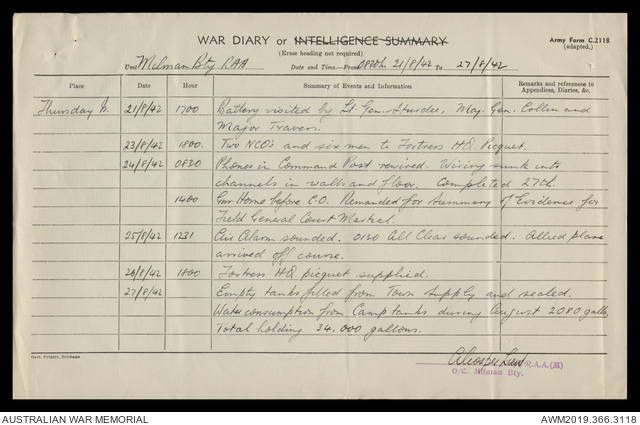 WAR DIARY or INTELLIGENCE SUMMARY
Army Form C.2118
(adapted.)
(Erase heading not required)
Unit Milman Bty RAA Date and Time—From 0830h 21/8/42 To 27/8/42
Place Date Hour Summary of Events and Information Remarks and references to Appendices, Diaries, &c.
Thursday Is. 21/8/42 1700 Battery visited by Lt. Gen. Sturdee, Maj. Gen. and
Major Travers.
23/8/42 1800. Two NCO's and six men to Fortress HQ Picquet.
24/8/42 0830 Phones in Command Post rewired. Wiring sunk into
channels in walls and floor. Completed 27th.
1400 Gnr Horne before C.O. Remanded for Summary of Evidence for
Field General Court Martial.
25/8/42 1231 Air Alarm sounded. 0130 All Clear sounded. Allied plane
arrived off course.
26/8/42 1800 Fortress HQ picquet supplied.
27/8/42 Empty tanks filled from Town Supply and sealed.
Water consumption from Camp tanks during August 2080 galls.
Total holding 34,000 gallons.
Govt. Printer, Brisbane
R.A.A.
O/C. Milman Bty.
AUSTRALIAN WAR MEMORIAL
AWM2019.366.3118